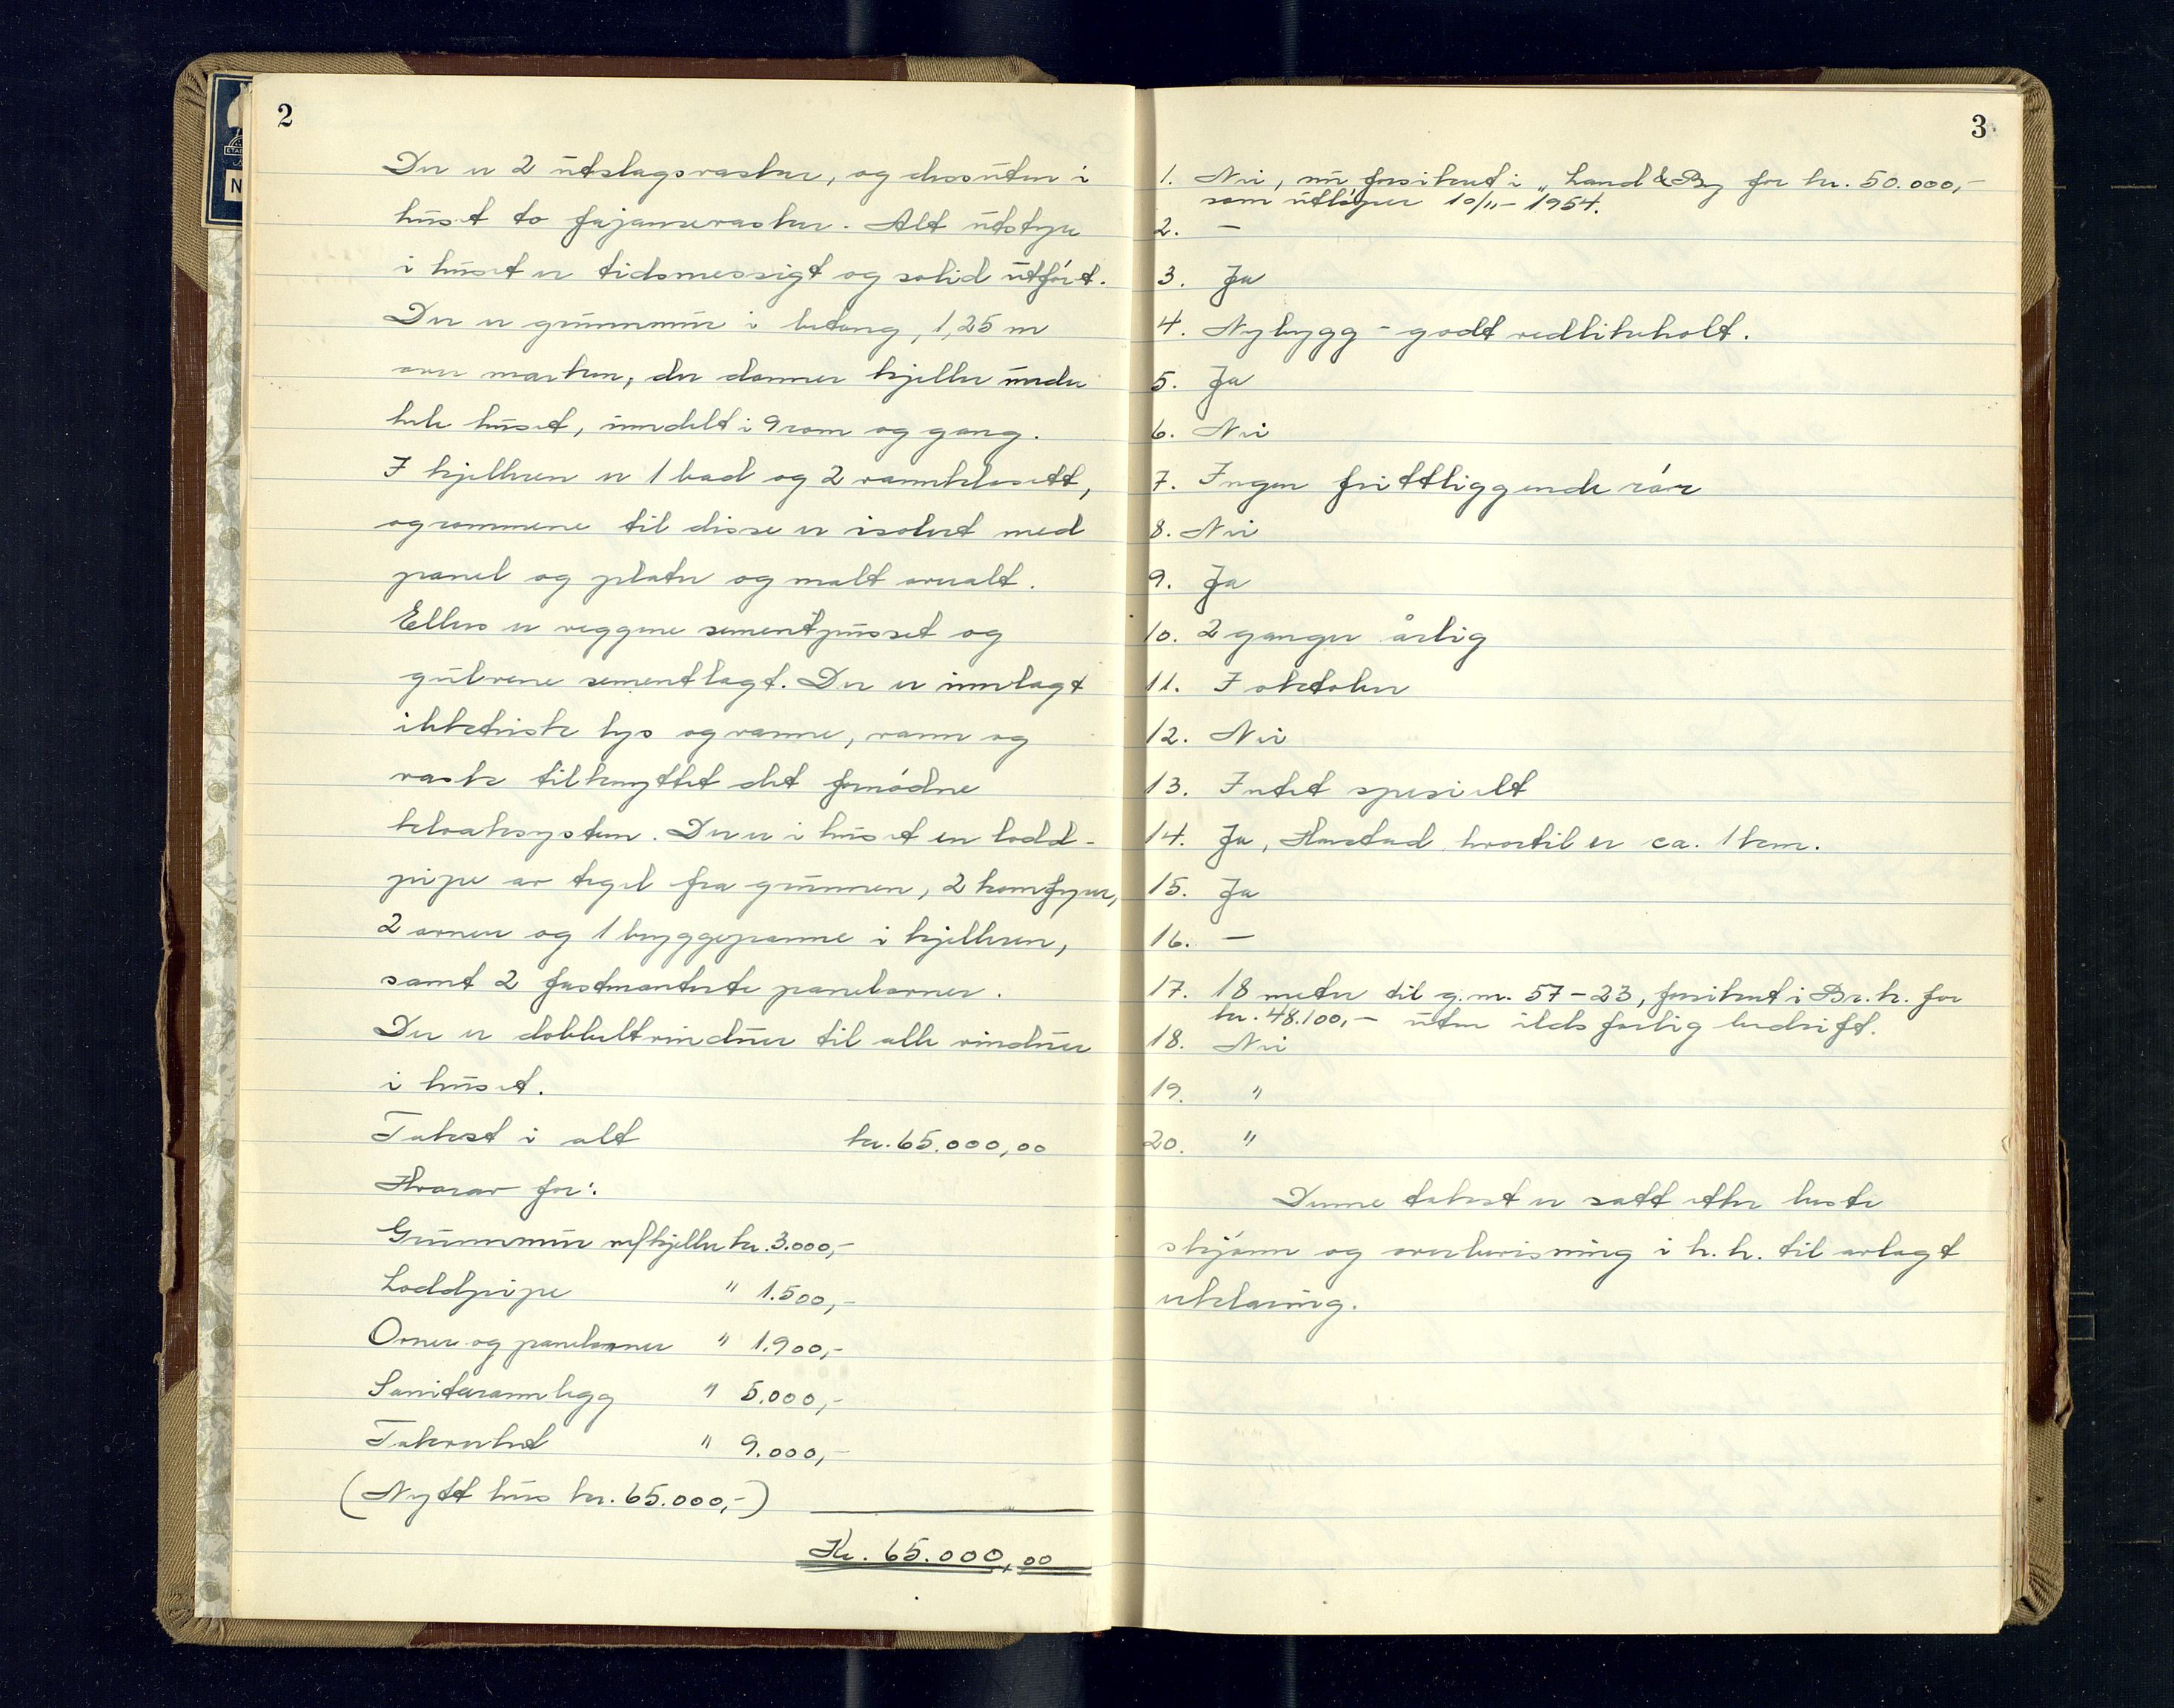 2
Der er 2 utslagsvasker, og dessuten i
huset to fajansevasker. Alt utstyr
i huset er tidsmessigt og solid utført.
Der er grunnmur i betong, 1,25 m
over marken, der danner kjeller under
hele huset, inndelt i 9 rom og gang.
I kjelleren er 1 bad og 2 vannklosett,
og rommene til disse er isolert med
panel og plater og malt overalt.
Ellers er veggene sementpusset og
gulvene sementlagt. Der er innlagt
elektriske lys og varme, vann og
vask tilknyttet det fornødne
kloaksystem. Der er i huset en lodd-
pipe av tegel fra grunnen, 2 komfyrer,
2 ovner og 1 bryggepanne i kjelleren,
samt 2 fastmonterte panelovner.
Der er dobbeltvinduer til alle vinduer
i huset.
Takst i alt kr. 65.000,00
Hvorav for:
Grunnmur m/kjeller kr. 3.000,-
Loddpipe " 1.500,-
Ovner og panelovner " 1.900,-
Saniteranlegg " 5.000,-
Takverket " 9.000,-
(Nytt hus kr. 65.000,-)
Kr. 65.000,00
3
1. Nei, nu forsikret i „Land & By for kr. 50.000,-
som utløper 10/11-1954.
2. -
3. Ja
4. Nybygg - godt vedlikeholt.
5. Ja
6. Nei
7. Ingen frittliggende rør
8. Nei
9. Ja
10. 2 ganger årlig
11. I oktober
12. Nei
13. Intet spesielt
14. Ja, Harstad hvortil er ca. 1 km.
15. Ja
16. -
17. 18 meter til g.nr. 57-23, forsikret i Br.k. for
kr. 48.100,- uten ildsfarlig bedrift.
18. Nei
19. "
20. "
Denne takst er satt etter beste
skjønn og overbevisning i h.h. til avlagt
erklæring.